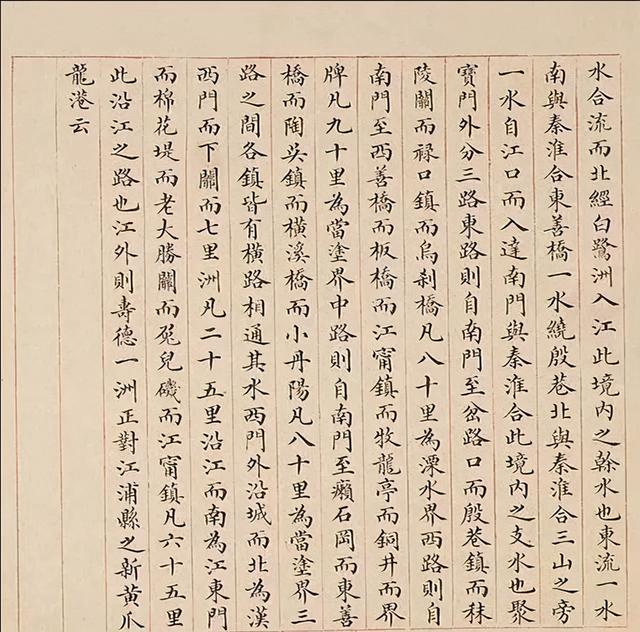 水合流而北經白鷺洲入江此境内之榦水也東流一水
南與秦淮合東善橋一水繞殷巷北與秦淮合三山之旁
一水自江口而入達南門與秦淮合此境内之支水也聚
寶門外分三路東路則自南門至岔路口而殷巷鎮而秣
陵關而祿口鎮而烏刹橋凡八十里為溧水界西路則自
南門至西善橋而板橋而江甯鎮而牧龍亭而銅井而界
牌凡九十里為當塗界中路則自南門至癩石岡而東善
橋而陶吳鎮而橫溪橋而小丹陽凡八十里為當塗界三
路之間各鎮皆有橫路相通其水西門外沿城而北為漢
西門而下關而七里洲凡二十五里沿江而南為江東門
而棉花堤而老大勝關而兎兒磯而江甯鎮凡六十五里
此沿江之路也江外則壽德一洲正對江浦縣之新黃爪
龍港云